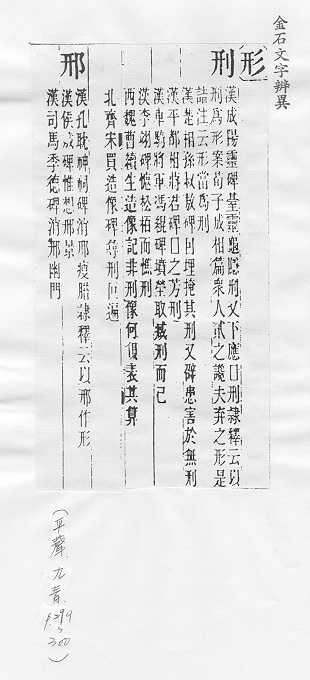 金石文字辨異
形
刑
漢成陽靈碑基靈龜隱刑又下應囗刑隸釋云以
刑爲形案荀子成相篇衆人貳之讒夫弃之形是
詰注云形當爲刑
漢楚相孫叔敖碑囗埋掩其刑又碑患害於無刑
漢平都相蔣君碑囗之芳刑
漢車騎將軍馮緄碑墳塋取藏刑而已
漢李翊碑愍拓而憔刑
西魏曹續生造像記非刑像何以表其算
北齊宋買造像碑尋刑囗遍
邢
漢孔耽神祠碑消邢瘦腊隸釋云以邢作形
漢侯成碑惟想邢景
漢司馬季德碑消邢幽門
(平聲 九青 p.299 300)